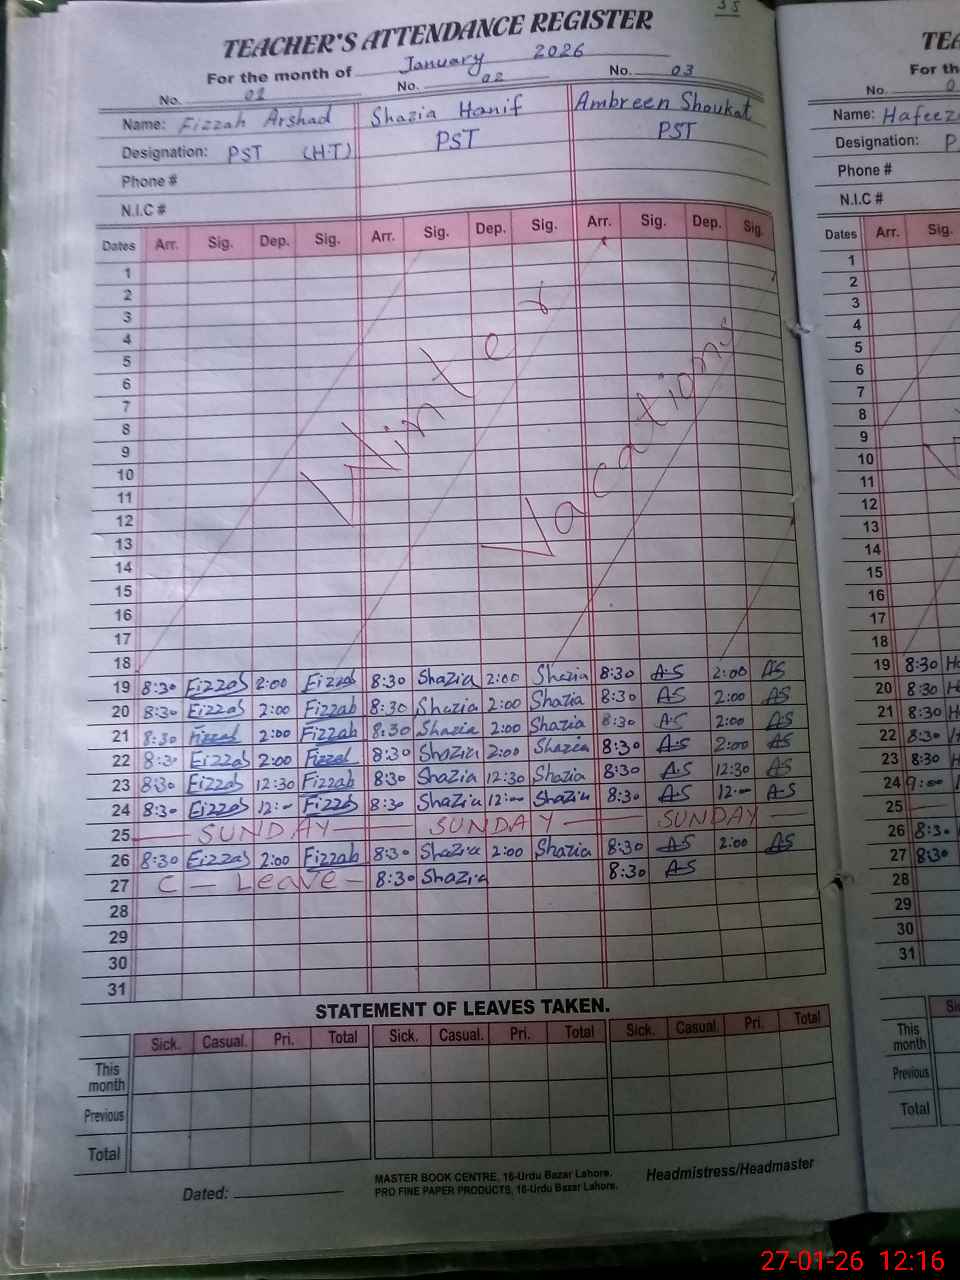 35
TEACHER'S ATTENDANCE REGISTER
For the month of January 2026
No. 01 No. 02 No. 03
Name: Fizzah Arshad Shazia Hanif Ambreen Shoukat
Designation: PST (H.T) PST PST
Phone #
N.I.C #
Dates Arr. Sig. Dep. Sig. Arr. Sig. Dep. Sig. Arr. Sig. Dep. Sig.
1
2
3
4
5
6
7
8
9
10
11
12
13
14
15
16
17
18
Winter
Vacations
19 8:30 Fizzah 2:00 Fizzah 8:30 Shazia 2:00 Shazia 8:30 A.S 2:00 AS
20 8:30 Fizzah 2:00 Fizzah 8:30 Shazia 2:00 Shazia 8:30 AS 2:00 AS
21 8:30 Fizzah 2:00 Fizzah 8:30 Shazia 2:00 Shazia 8:30 A.S 2:00 AS
22 8:30 Fizzah 2:00 Fizzah 8:30 Shazia 2:00 Shazia 8:30 A.S 2:00 AS
23 8:30 Fizzah 12:30 Fizzah 8:30 Shazia 12:30 Shazia 8:30 A.S 12:30 AS
24 8:30 Fizzah 12:00 Fizzah 8:30 Shazia 12:00 Shazia 8:30 A.S 12:00 A.S
25 SUNDAY SUNDAY SUNDAY
26 8:30 Fizzah 2:00 Fizzah 8:30 Shazia 2:00 Shazia 8:30 AS 2:00 AS
27 C - Leave - 8:30 Shazia 8:30 A.S
28
29
30
31
STATEMENT OF LEAVES TAKEN.
Sick. Casual. Pri. Total Sick. Casual. Pri. Total Sick. Casual. Pri. Total
This month
Previous
Total
Dated:
MASTER BOOK CENTRE, 16-Urdu Bazar Lahore.
PRO FINE PAPER PRODUCTS, 16-Urdu Bazar Lahore.
Headmistress/Headmaster
For th
No.
Name: Hafeez
Designation: P
Phone #
N.I.C #
Dates Arr. Sig.
1
2
3
4
5
6
7
8
9
10
11
12
13
14
15
16
17
18
19 8:30
20 8:30
21 8:30
22 8:30
23 8:30
24 9:00
25
26 8:30
27 8:30
28
29
30
31
This month
Previous
Total
27-01-26 12:16